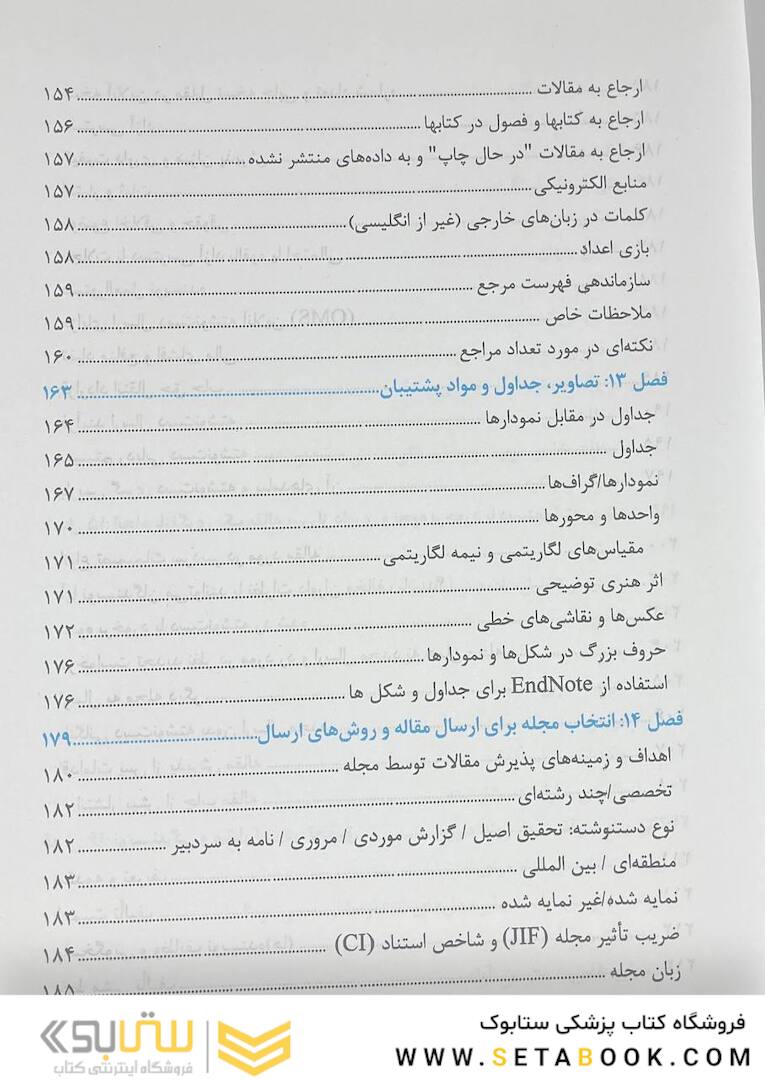 ارجاع به مقالات ........ ۱۵۴
ارجاع به کتابها و فصول در کتابها ........ ۱۵۶
ارجاع به مقالات "در حال چاپ" و به داده‌های منتشر نشده ........ ۱۵۷
منابع الکترونیکی ........ ۱۵۷
کلمات در زبان‌های خارجی (غیر از انگلیسی) ........ ۱۵۸
بازی اعداد ........ ۱۵۸
سازماندهی فهرست مرجع ........ ۱۵۹
ملاحظات خاص ........ ۱۵۹
نکته‌ای در مورد تعداد مراجع ........ ۱۶۰
فصل ۱۳: تصاویر، جداول و مواد پشتیبان ........ ۱۶۳
جداول در مقابل نمودارها ........ ۱۶۴
جداول ........ ۱۶۵
نمودارها/گراف‌ها ........ ۱۶۷
واحدها و محورها ........ ۱۷۰
مقیاس‌های لگاریتمی و نیمه لگاریتمی ........ ۱۷۱
اثر هنری توضیحی ........ ۱۷۱
عکس‌ها و نقاشی‌های خطی ........ ۱۷۲
حروف بزرگ در شکل‌ها و نمودارها ........ ۱۷۶
استفاده از EndNote برای جداول و شکل ها ........ ۱۷۶
فصل ۱۴: انتخاب مجله برای ارسال مقاله و روش‌های ارسال ........ ۱۷۹
اهداف و زمینه‌های پذیرش مقالات توسط مجله ........ ۱۸۰
تخصصی/چند رشته‌ای ........ ۱۸۲
نوع دستنوشته: تحقیق اصیل / گزارش موردی / مروری / نامه به سردبیر ........ ۱۸۲
منطقه‌ای / بین المللی ........ ۱۸۳
نمایه شده/غیر نمایه شده ........ ۱۸۳
ضریب تأثیر مجله (JIF) و شاخص استناد (CI) ........ ۱۸۴
زبان مجله ........ ۱۸۵
فروشگاه کتاب پزشکی ستابوک
WWW.SETABOOK.COM
ستابوک
فروشگاه اینترنتی کتاب